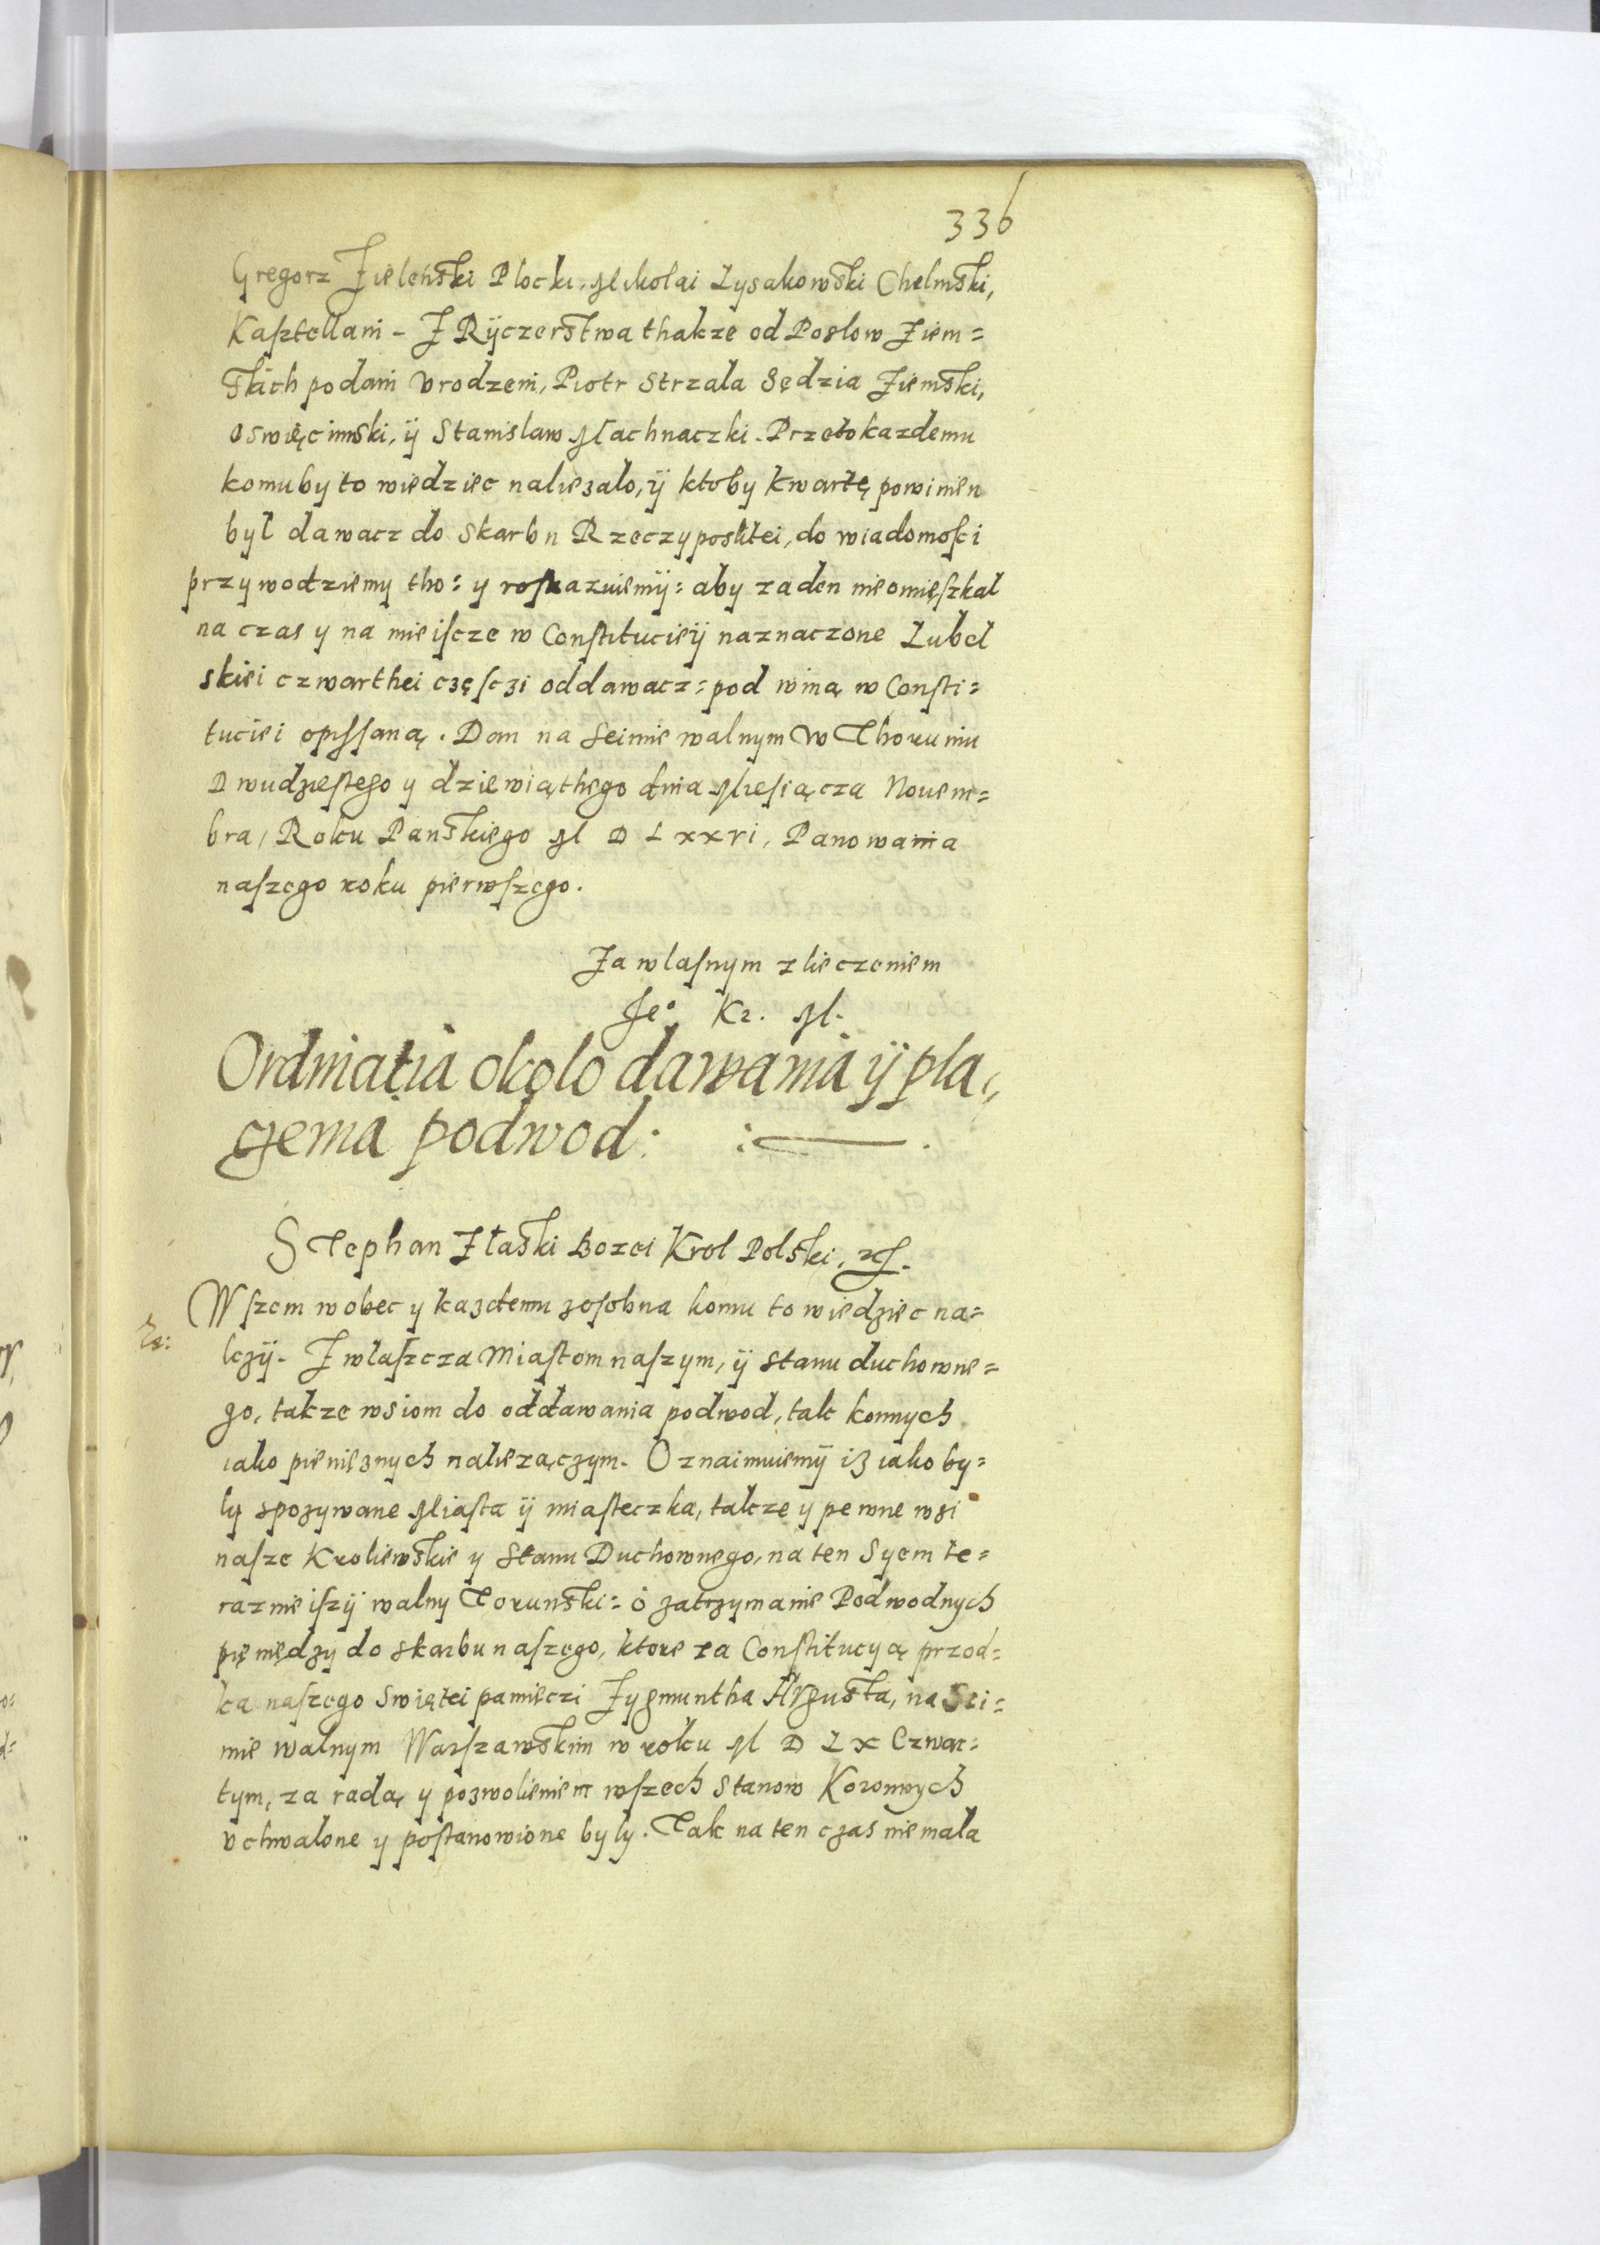 336
Gregorz Zielenski Plocki, Mikolai Lysakowski Chelmski,
Kasztellani - Z Ryczerstwa thakze od Poslow Ziem=
skich podani Vrodzeni, Piotr Strzala Sędzia Ziemski,
Oswięcimski, ÿ Stanislaw Machnaczki. Przeto kazdemu
komuby to wiedziec naliezalo, ÿ ktoby kwartę powinien
byl dawacz do skarbu Rzeczyposlitei, do wiadomosci
przywodziemy tho: y roskazuiemÿ: aby zaden nieomięszkal
na czas y na mieiscze w Constitucieÿ naznaczone Lubel
skiei czwarthei częsczi oddawacz: pod winą w Consti=
tuciei opissaną. Dan na Seimie walnym W Thoruniu
Dwudziestego y dziewiąthego dnia Miesiącza Nouem=
bra, Roku Panskiego M D Lxxvi, Panowania
naszego roku pierwszego.
Za wlasnym zlieczeniem
Je° Kr. M.
Ordinatia okolo dawania ÿ pla,
czenia podwod:
Stephan Z łaski Bozei Krol Polski, etc.
Wszem wobec y kazdemu zosobna komu to wiedziec na=
lezÿ. Zwlaszcza Miastom naszym, ÿ stanu duchowne=
go, takze wsiom do oddawania podwod, tak konnych
iako pieniężnych naliezączym. Oznaimuiemÿ iz iako by=
ly spozywane Miasta ÿ miasteczka, takze y pewne wsi
nasze Kroliewskie y Stanu Duchownego, na ten Syem te=
raznieiszÿ walny Torunski: o zatrzymanie Podwodnych
pięnnędzy do skarbu naszego, ktore za Constitucyą przod=
ka naszego swiątei pamięczi Zygmuntha Avgusta, na Sei=
mie walnym Warszawskim w roku M D Lx Czwar=
tym, za radą y pozwolieniem wszech Stanow Koronnych
vchwalone y postanowione byly. Tak na ten czas niemala